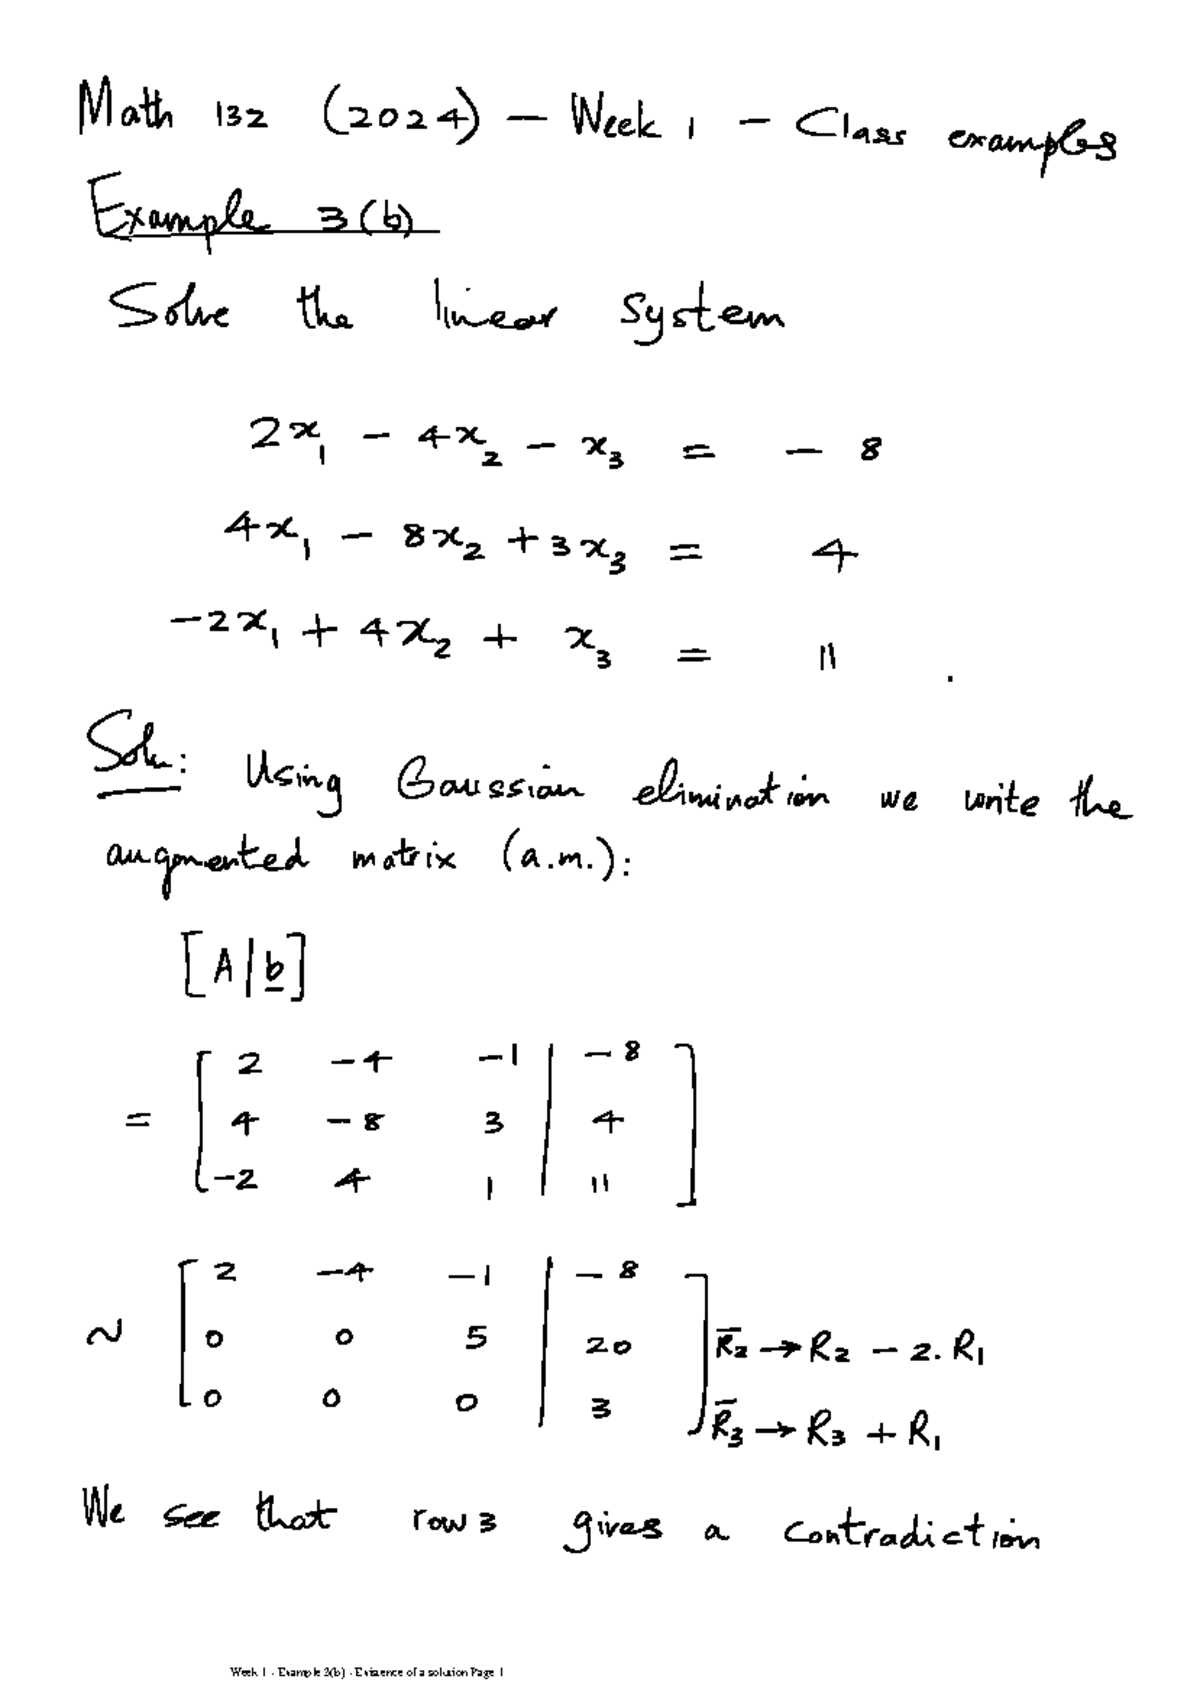 Math 132 (2024) – Week 1 – Class examples
Example 3(b)
Solve the linear system
2x₁ – 4x₂ – x₃ = – 8
4x₁ – 8x₂ + 3x₃ = 4
–2x₁ + 4x₂ + x₃ = 11 .
Soln: Using Gaussian elimination we write the
augmented matrix (a.m.):
[A|b]
= [ 2 –4 –1 | –8 ]
[ 4 –8 3 | 4 ]
[ –2 4 1 | 11 ]
~ [ 2 –4 –1 | –8 ]
[ 0 0 5 | 20 ] R̅₂ → R₂ – 2. R₁
[ 0 0 0 | 3 ] R̅₃ → R₃ + R₁
We see that row 3 gives a contradiction
Week 1 - Example 3(b) - Existence of a solution Page 1